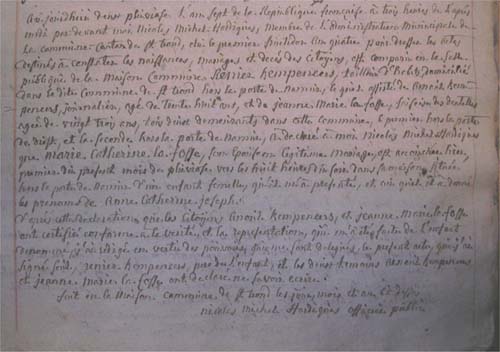 aujourd'hui deux pluviose l'an sept de la Republique française a trois heures de l'après
midi par devant moi Nicolas Michel Hardigues, Membre de l'administration Municipale de
la commune canton de st trond, élu le premier an quatre pour dresser les actes
destinés a constater les naissances, mariages et décès des Citoyens, est comparu en la salle
publique de la Maison Commune Renier Kempeneers, domicilié
dans la dite Commune de st trond hors la porte de namur, le quel assisté de Benoit Kem
peneers, journalier, agé de trente huit ans, et de jeanne Marie la fosse,
agée de vingt trois ans, tous deux demeurants dans cette commune, le premier hors la porte
de et la seconde hors la porte de namur, a déclaré à moi nicolas michel Hardigues
que Marie Catherine la fosse, son Epouse en légitime Mariage, est accouchée hier,
premier du present mois de pluviose vers les huit heures du soir dans sa maison située
hors la porte de namur d'un enfant femelle qu'il m'a présenté, et au quel il a donné
les prénoms de anne Catherine joseph.
D'après cette declaration que les Citoyens Benoit Kempeneers, et jeanne Marie la fosse
ont certifié conforme à la verité, et la representation qui m'a été faite de l'enfant
denommé, j'ai rédigé en vertu des pouvoirs qui me sont delegués, le present acte, que j'ai
signé seul, renier Kempeneers pere de l'enfant, et les deux temoins Benoit Kempeneers
et jeanne Marie la fosse ont declaré ne savoir ecrire.
fait en la Maison commune de st trond les jour, mois et an
nicolas Michel Hardigues officier public